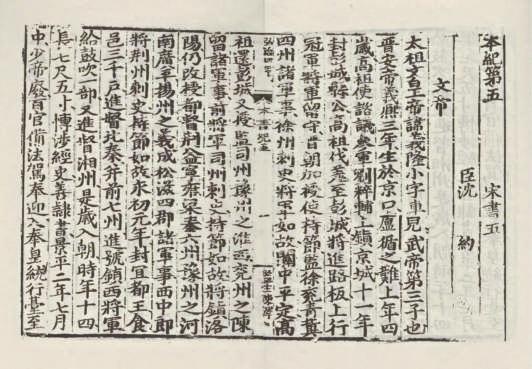 本紀第五　宋書五
臣沈　約
文帝
太祖文皇帝諱義隆小字車兒武帝第三子也
晉安帝義熙三年生於京口盧循之難上年四
歲高祖使諮議參軍劉粹輔上鎮京城十一年
封彭城縣公高祖伐羌至彭城將進路板上行
冠軍將軍留守晉朝加授使持節監徐兗青冀
四州諸軍事徐州刺史將軍如故關中平定高
祖還彭城又授監司州豫州之淮西兗州之陳
留諸軍事前將軍司州刺史持節如故將鎮洛
陽仍改授都督荊益寧雍梁秦六州豫州之河
南廣平揚州之義成松滋四郡諸軍事西中郎
將荊州刺史持節如故永初元年封宜都王食
邑三千戶進督北秦并前七州進號鎮西將軍
給鼓吹一部又進督湘州是歲入朝時年十四
長七尺五寸博涉經史善隸書景平二年七月
中少帝廢百官備法駕奉迎入奉皇統行臺至